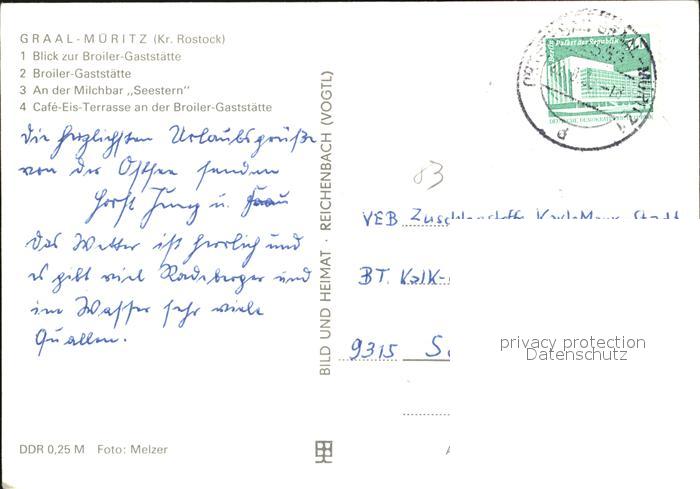 GRAAL-MÜRITZ (Kr. Rostock)
1 Blick zur Broiler-Gaststätte
2 Broiler-Gaststätte
3 An der Milchbar „Seestern"
4 Café-Eis-Terrasse an der Broiler-Gaststätte
Die herzlichsten Urlaubsgrüße
von der Ostsee senden
Horst Jung u. Frau
Das Wetter ist herrlich und
es gibt viel Radeberger und
im Wasser sehr viele
Quallen.
DDR 0,25 M Foto: Melzer
BILD UND HEIMAT · REICHENBACH (VOGTL)
Palast der Republik
GRAAL-MÜRITZ 1
83
VEB Zuschlagstoffe Karl-Marx-Stadt
BT. Kalk-
9315 S.
privacy protection
Datenschutz